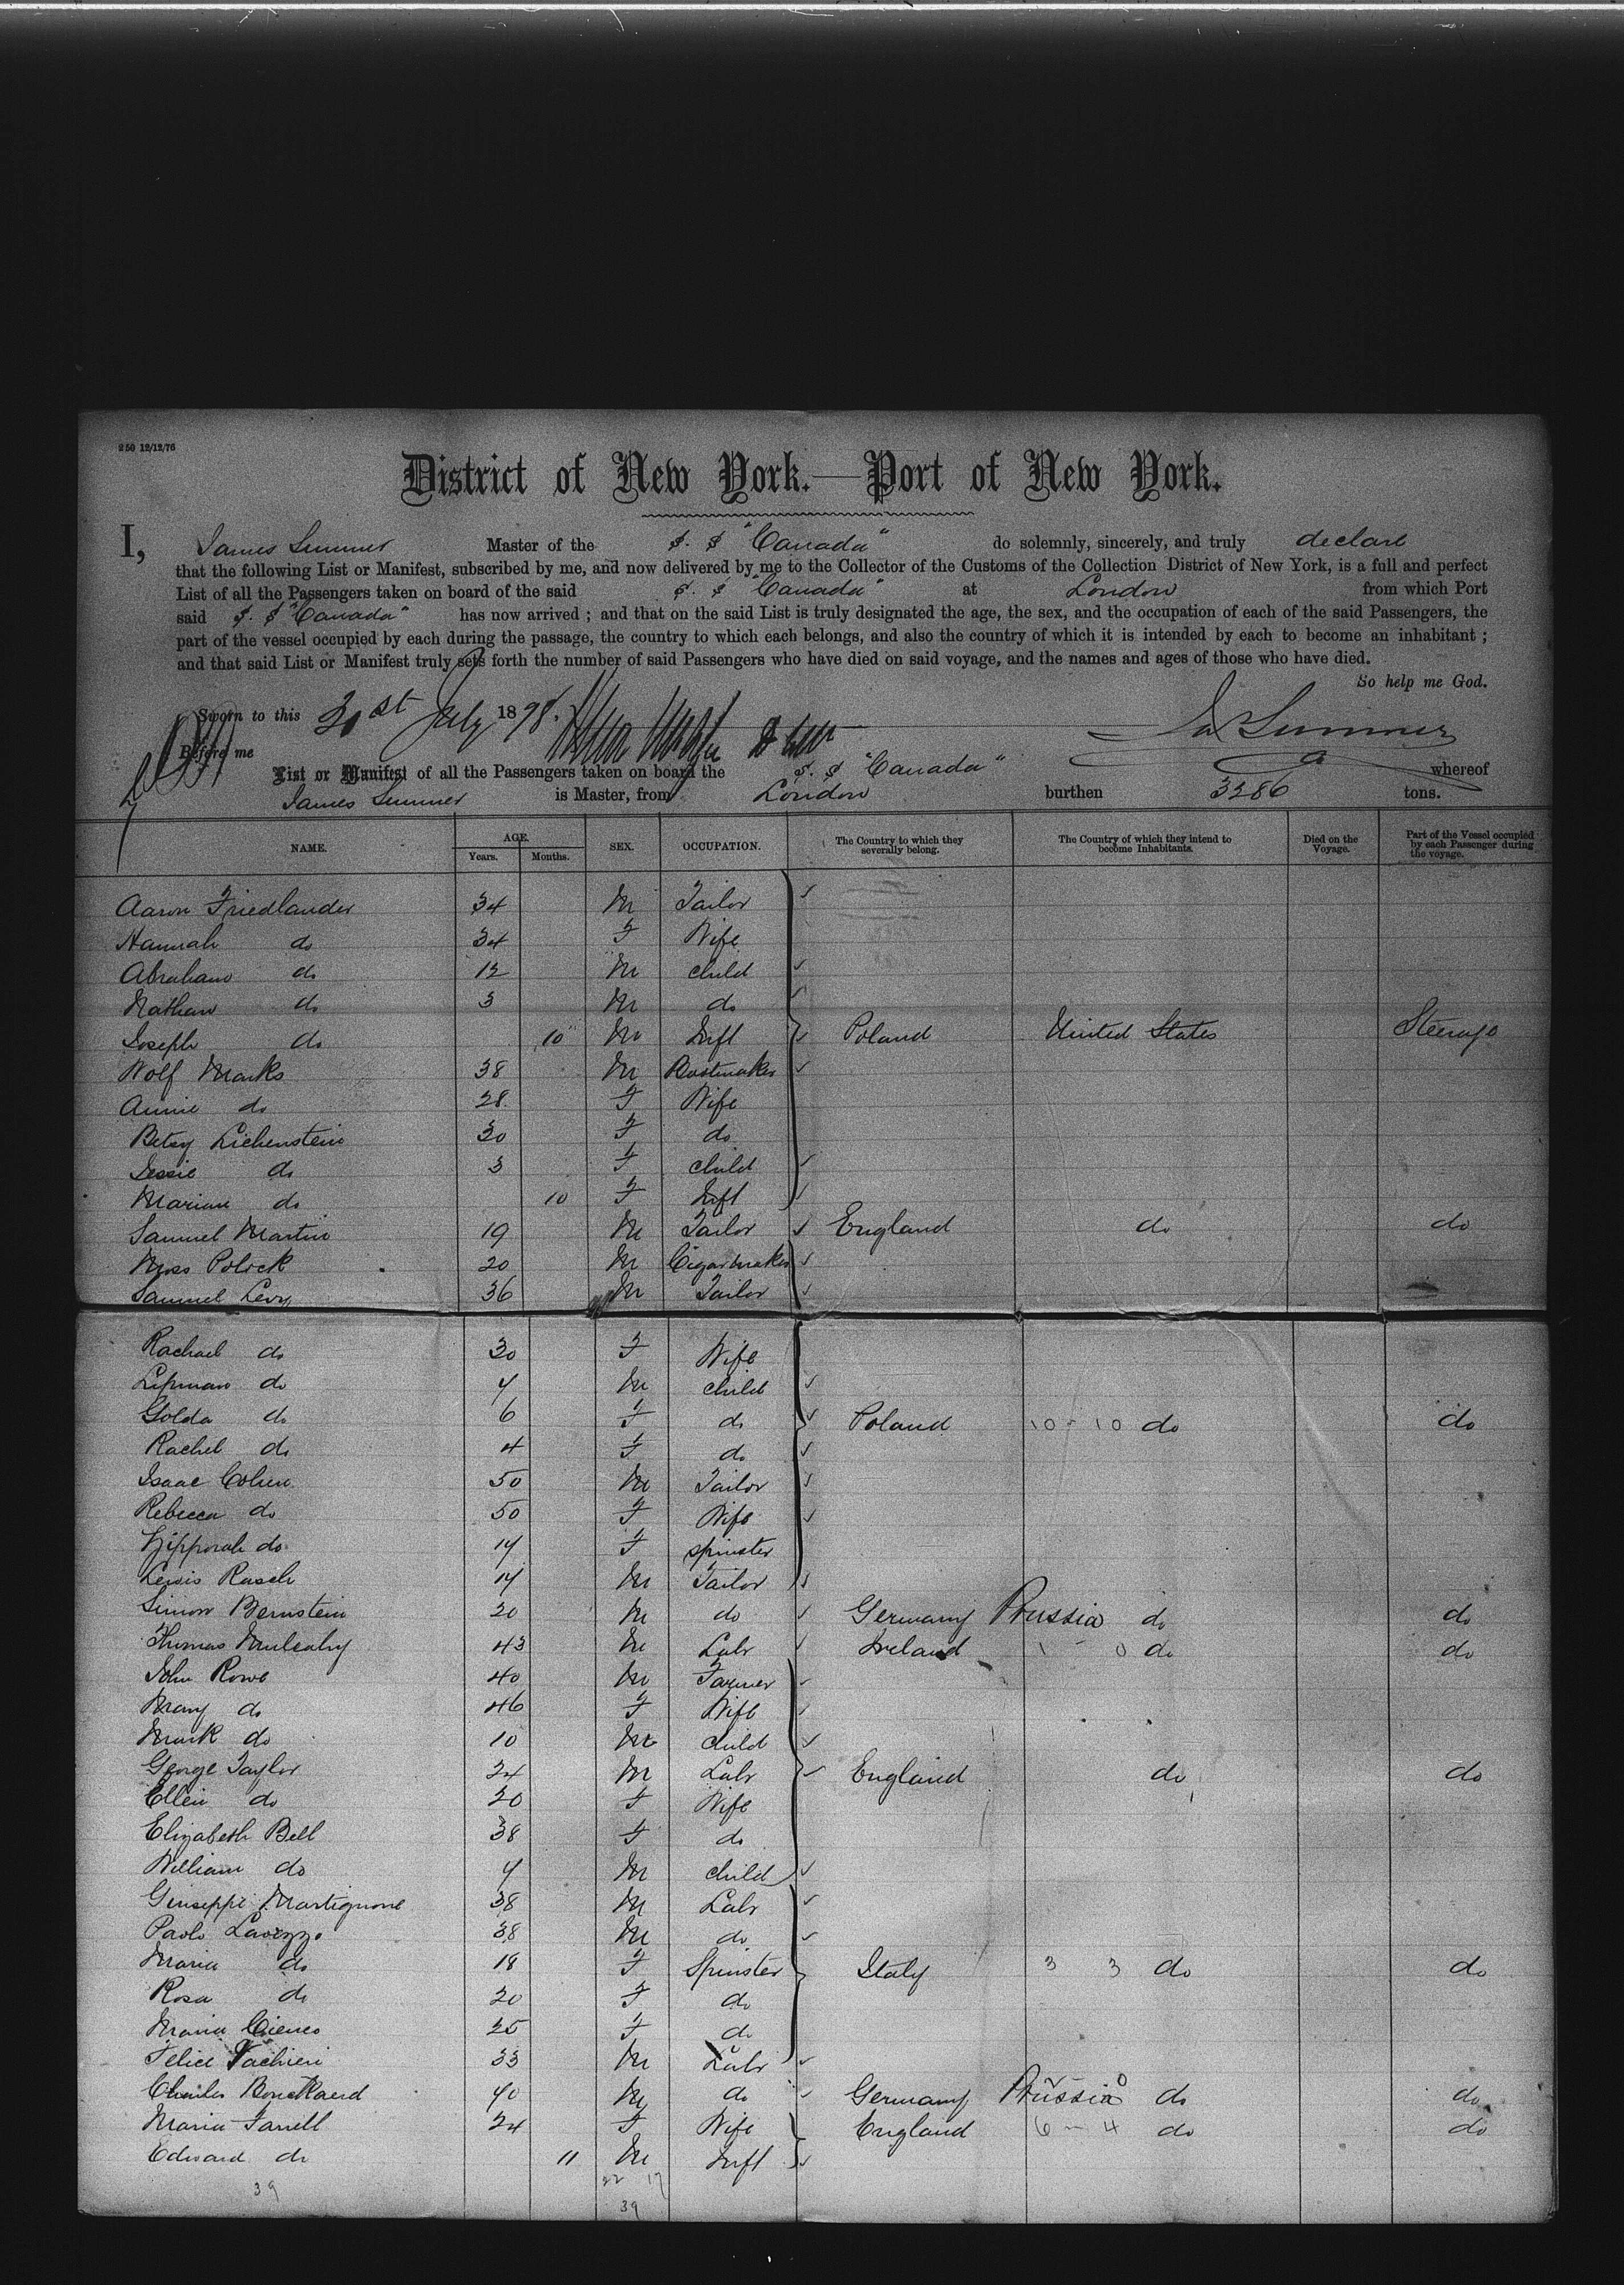 250 12/12/76
District of New York.—Port of New York.
I, James Sumner Master of the S. S "Canada" do solemnly, sincerely, and truly declare
that the following List or Manifest, subscribed by me, and now delivered by me to the Collector of the Customs of the Collection District of New York, is a full and perfect
List of all the Passengers taken on board of the said S. S "Canada" at London from which Port
said S. S "Canada" has now arrived ; and that on the said List is truly designated the age, the sex, and the occupation of each of the said Passengers, the
part of the vessel occupied by each during the passage, the country to which each belongs, and also the country of which it is intended by each to become an inhabitant ;
and that said List or Manifest truly sets forth the number of said Passengers who have died on said voyage, and the names and ages of those who have died.
So help me God.
Sworn to this 31st July 1878. Ja Sumner
Before me
List or Manifest of all the Passengers taken on board the S. S "Canada" whereof
James Sumner is Master, from London burthen 3286 tons.
NAME. AGE. Years. Months. SEX. OCCUPATION. The Country to which they severally belong. The Country of which they intend to become Inhabitants. Died on the Voyage. Part of the Vessel occupied by each Passenger during the voyage.
Aaron Friedlander 34 M Tailor
Hannah do 34 F Wife
Abraham do 12 M child
Nathan do 3 M do
Joseph do 10 M Inft Poland United States Steerage
Wolf Marks 38 M Bootmaker
Annie do 28 F Wife
Betsy Lichenstein 30 F do
Jessie do 3 F child
Marian do 10 F Inft
Samuel Martin 19 M Tailor England do do
Moss Polock 20 M Cigarmaker
Samuel Levy 36 M Tailor
Rachael do 30 F Wife
Lipman do 7 M child
Golda do 6 F do Poland 10 - 10 do do
Rachel do 4 F do
Isaac Cohen 50 M Tailor
Rebecca do 50 F Wife
Zipporah do 17 F spinster
Lewis Rasch 17 M Tailor
Simon Bernstein 20 M do Germany Prussia do do
Thomas Mulcahy 43 M Labr Ireland 1 - 0 do do
John Rowe 40 M Farmer
Mary do 46 F Wife
Mark do 10 M child
George Taylor 24 M Labr England do do
Ellen do 20 F Wife
Elizabeth Bell 38 F do
William do 7 M child
Giuseppi Martignone 38 M Labr
Paolo Lavezzo 38 M do
Maria do 18 F Spinster Italy 3 3 do do
Rosa do 20 F do
Maria 25 F do
Felice 33 M Labr
Charles 40 M do Germany Prussia do do
Maria Farrell 24 F Wife England 6 - 4 do do
Edward do 11 M Inft
39 22 17
39